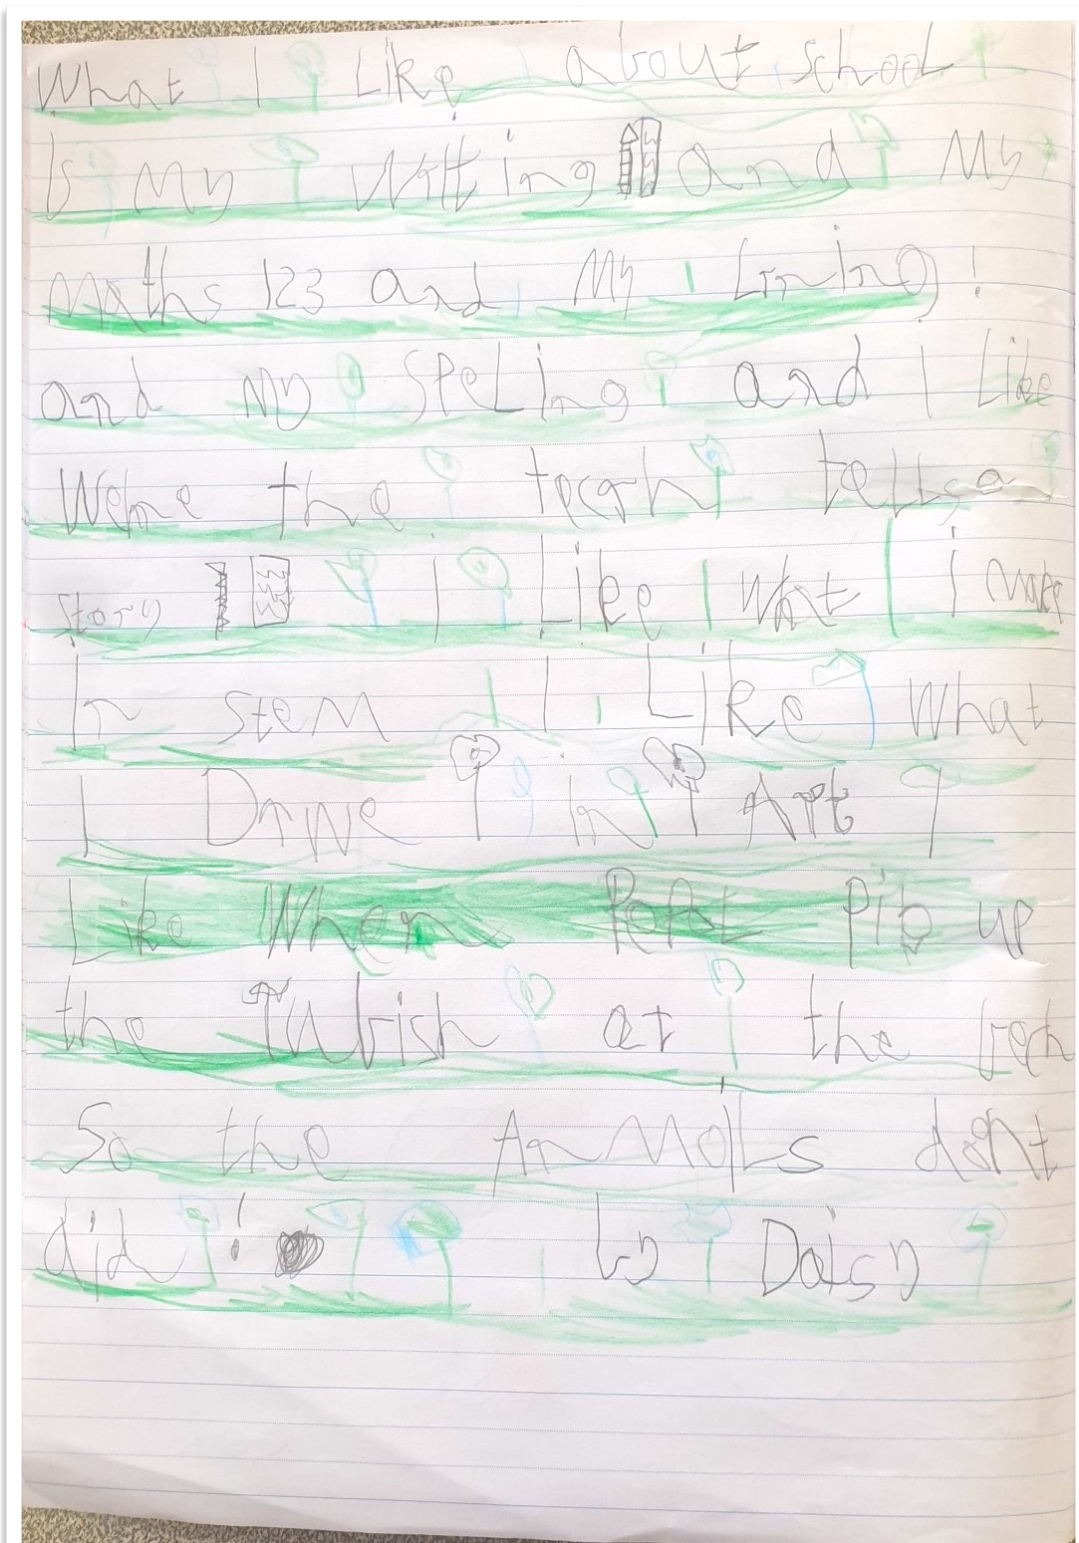 What I Like about school
Is my writting and my
maths 123 and my Lrning!
and my speling and I Like
Wehne the teach tells a
story I Like what I make
In stem I Like what
I Drwe in Art I
Like When Pepol pib up
the rubish at the bech
So the AnMols dont
did! by Daisy